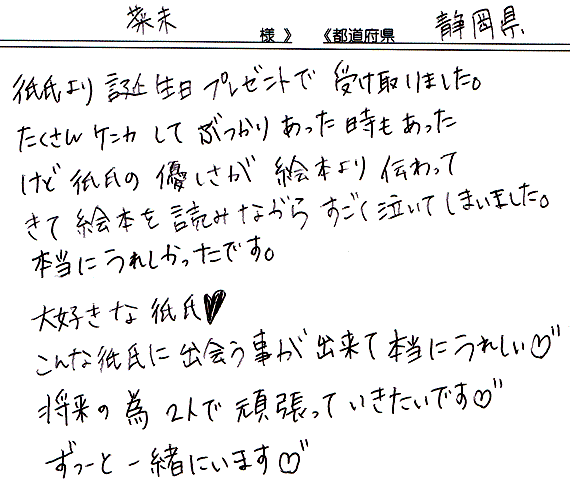 菜未 様 》 《都道府県 静岡県
彼氏より 誕生日 プレゼントで 受け取りました。
たくさん ケンカ して ぶつかり あった 時も あった
けど 彼氏の 優しさが 絵本より 伝わって
きて 絵本を 読みながら すごく 泣いて しまいました。
本当に うれしかったです。
大好きな 彼氏♥
こんな彼氏に 出会う事が 出来て 本当に うれしい♡"
将来の 為 2人で 頑張って いきたいです♡"
ずっーと 一緒にいます♡"